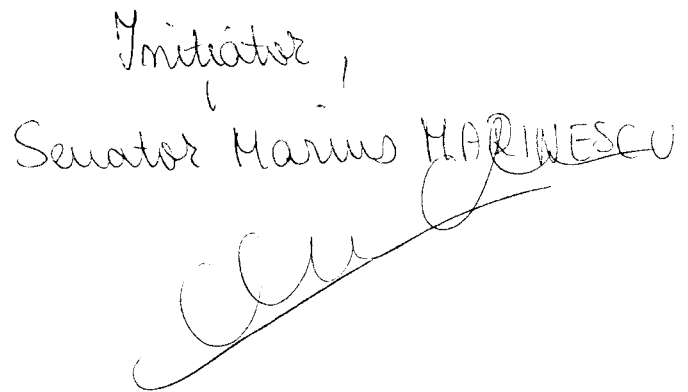 Inițiator,
Senator Marius MARINESCU